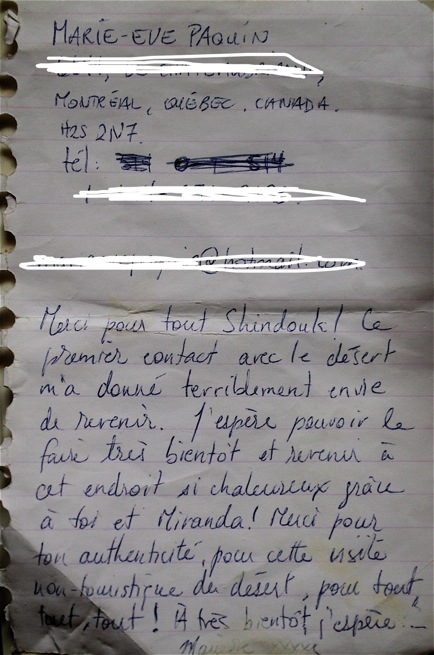 MARIE-EVE PAQUIN
MONTRÉAL, QUÉBEC, CANADA.
H2S 2N7.
tél: 514
@hotmail.com
Merci pour tout Shindouk! Ce
premier contact avec le désert
m'a donné terriblement envie
de revenir. J'espère pouvoir le
faire très bientôt et revenir à
cet endroit si chaleureux grâce
à toi et Miranda! Merci pour
ton authenticité, pour cette visite
non-touristique du désert, pour tout,
tout, tout! À très bientôt j'espère...
xxxx